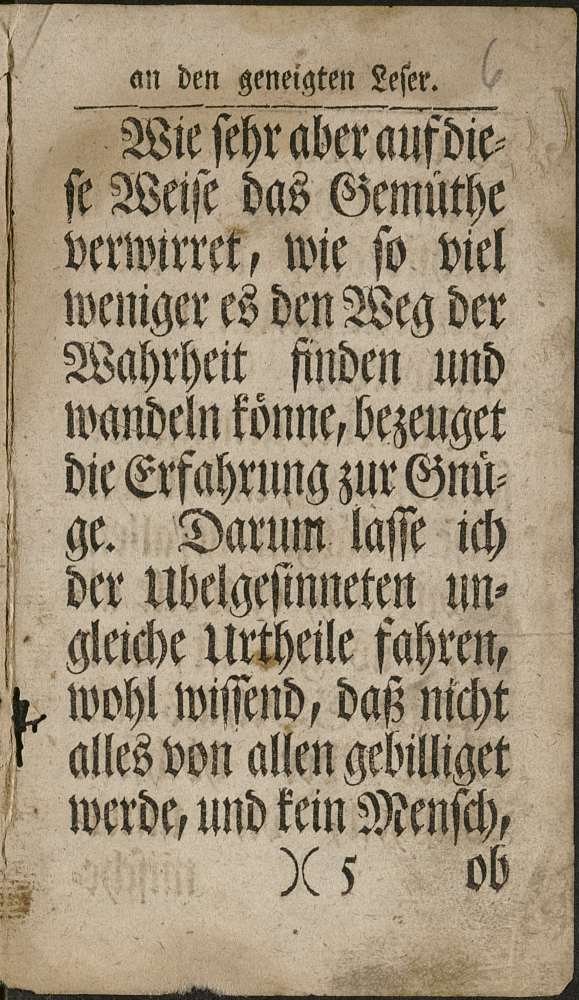 an den geneigten Leser.
6
Wie sehr aber auf die⸗
se Weise das Gemüthe
verwirret, wie so viel
weniger es den Weg der
Wahrheit finden und
wandeln koͤnne, bezeuget
die Erfahrung zur Gnü⸗
ge. Darum lasse ich
der Ubelgesinneten un⸗
gleiche Urtheile fahren,
wohl wissend, daß nicht
alles von allen gebilliget
werde, und kein Mensch,
)( 5 ob